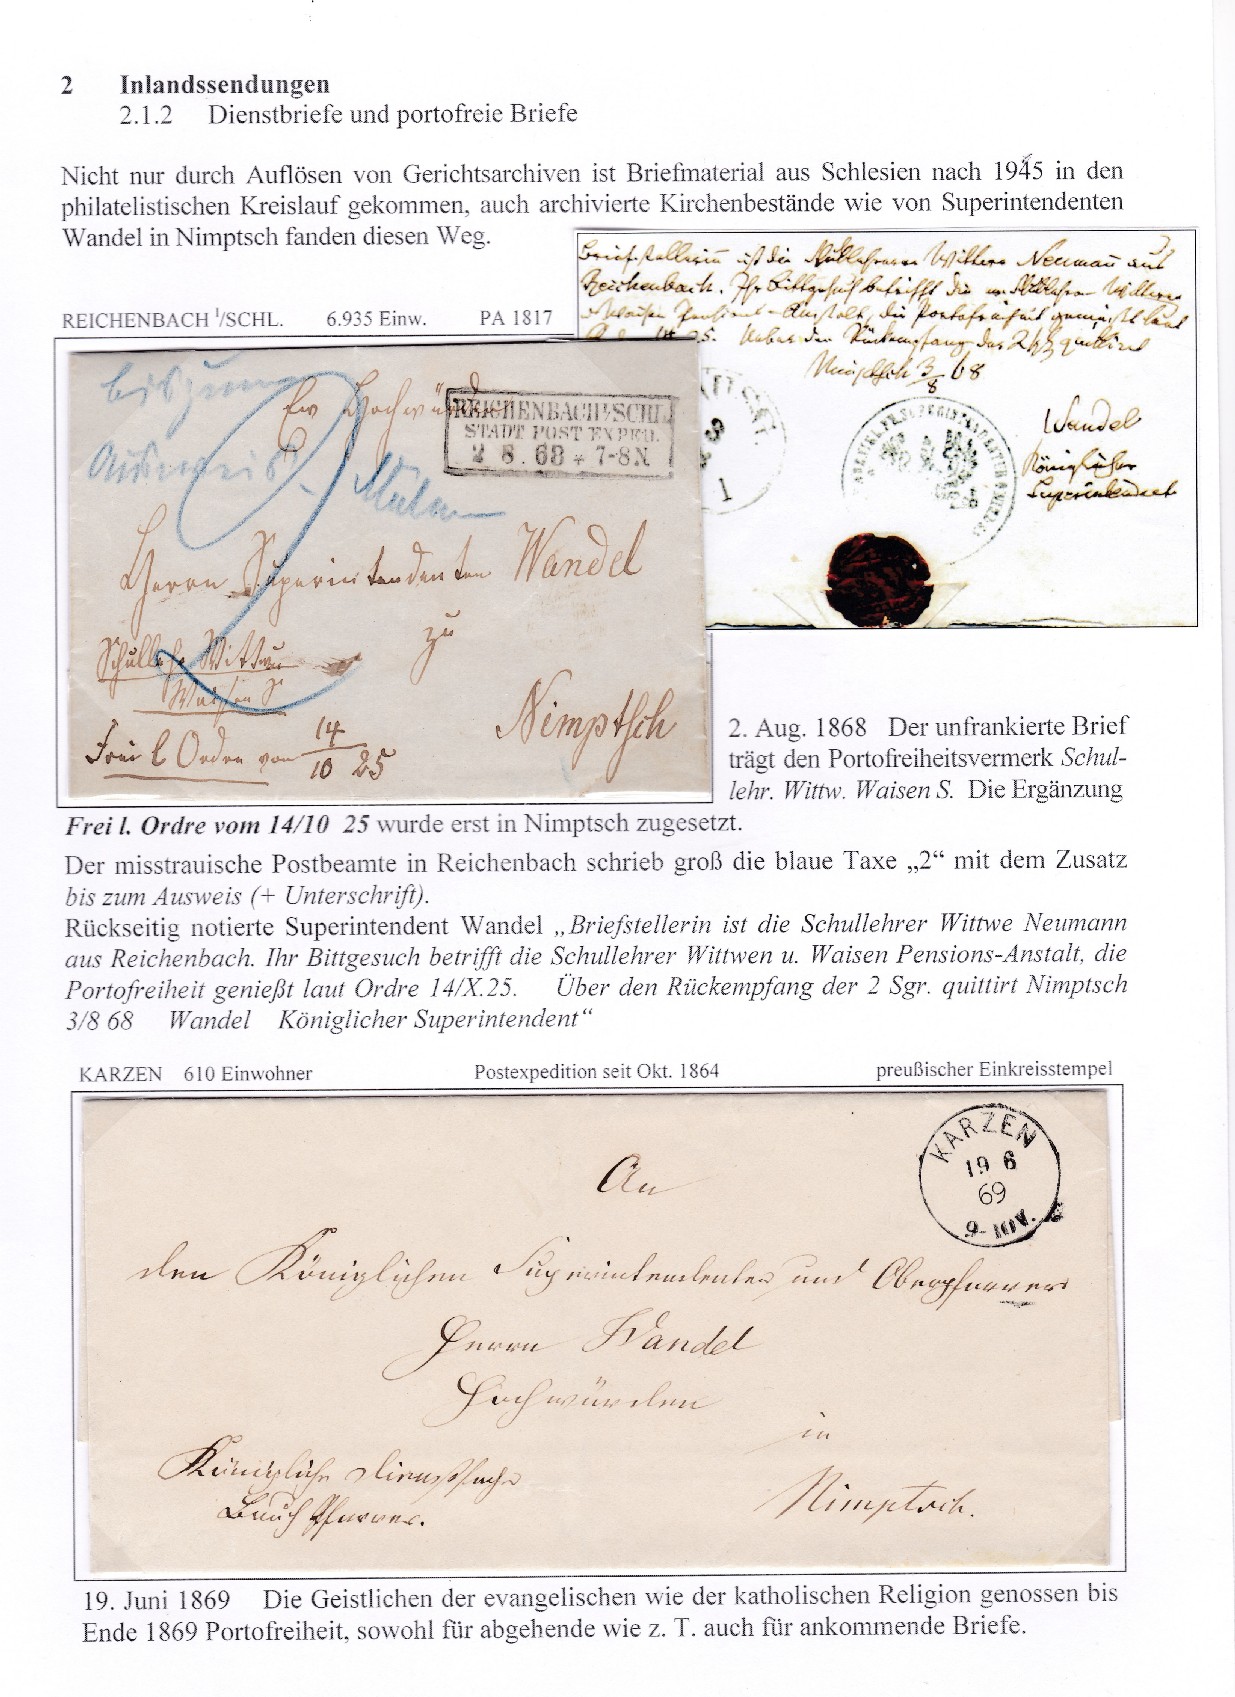 2 Inlandssendungen
2.1.2 Dienstbriefe und portofreie Briefe
Nicht nur durch Auflösen von Gerichtsarchiven ist Briefmaterial aus Schlesien nach 1945 in den
philatelistischen Kreislauf gekommen, auch archivierte Kirchenbestände wie von Superintendenten
Wandel in Nimptsch fanden diesen Weg.
REICHENBACH I/SCHL. 6.935 Einw. PA 1817
Briefstellerin ist die Schullehrer Wittwe Neumann aus
Reichenbach. Ihr Bittgesuch betrifft die Schullehrer Wittwen
u Waisen Pensions-Anstalt, die Portofreiheit genießt laut
Ordre 14 25. Ueber den Rückempfang der 2 Sgr quittirt
Nimptsch 3/8 68
Wandel
Königlicher
Superintendent
bis zum
Ausweis
2
Ew Hochwürden
REICHENBACH I/SCHL.
STADT POST EXPED.
2 8. 68 7-8N
Herrn Superintendenten Wandel
zu
Nimptsch
Schulleh Wittw
Waisen S
Frei l Ordre von 14/10 25
2. Aug. 1868 Der unfrankierte Brief
trägt den Portofreiheitsvermerk Schul-
lehr. Wittw. Waisen S. Die Ergänzung
Frei l. Ordre vom 14/10 25 wurde erst in Nimptsch zugesetzt.
Der misstrauische Postbeamte in Reichenbach schrieb groß die blaue Taxe „2“ mit dem Zusatz
bis zum Ausweis (+ Unterschrift).
Rückseitig notierte Superintendent Wandel „Briefstellerin ist die Schullehrer Wittwe Neumann
aus Reichenbach. Ihr Bittgesuch betrifft die Schullehrer Wittwen u. Waisen Pensions-Anstalt, die
Portofreiheit genießt laut Ordre 14/X.25. Über den Rückempfang der 2 Sgr. quittirt Nimptsch
3/8 68 Wandel Königlicher Superintendent“
KARZEN 610 Einwohner Postexpedition seit Okt. 1864 preußischer Einkreisstempel
KARZEN
19 6
69
9-10V.
An
den Königlichen Superintendenten und Oberpfarrer
Herrn Wandel
Hochwürden
in
Nimptsch.
Königliche Dienstsache
Pfarrer.
19. Juni 1869 Die Geistlichen der evangelischen wie der katholischen Religion genossen bis
Ende 1869 Portofreiheit, sowohl für abgehende wie z. T. auch für ankommende Briefe.